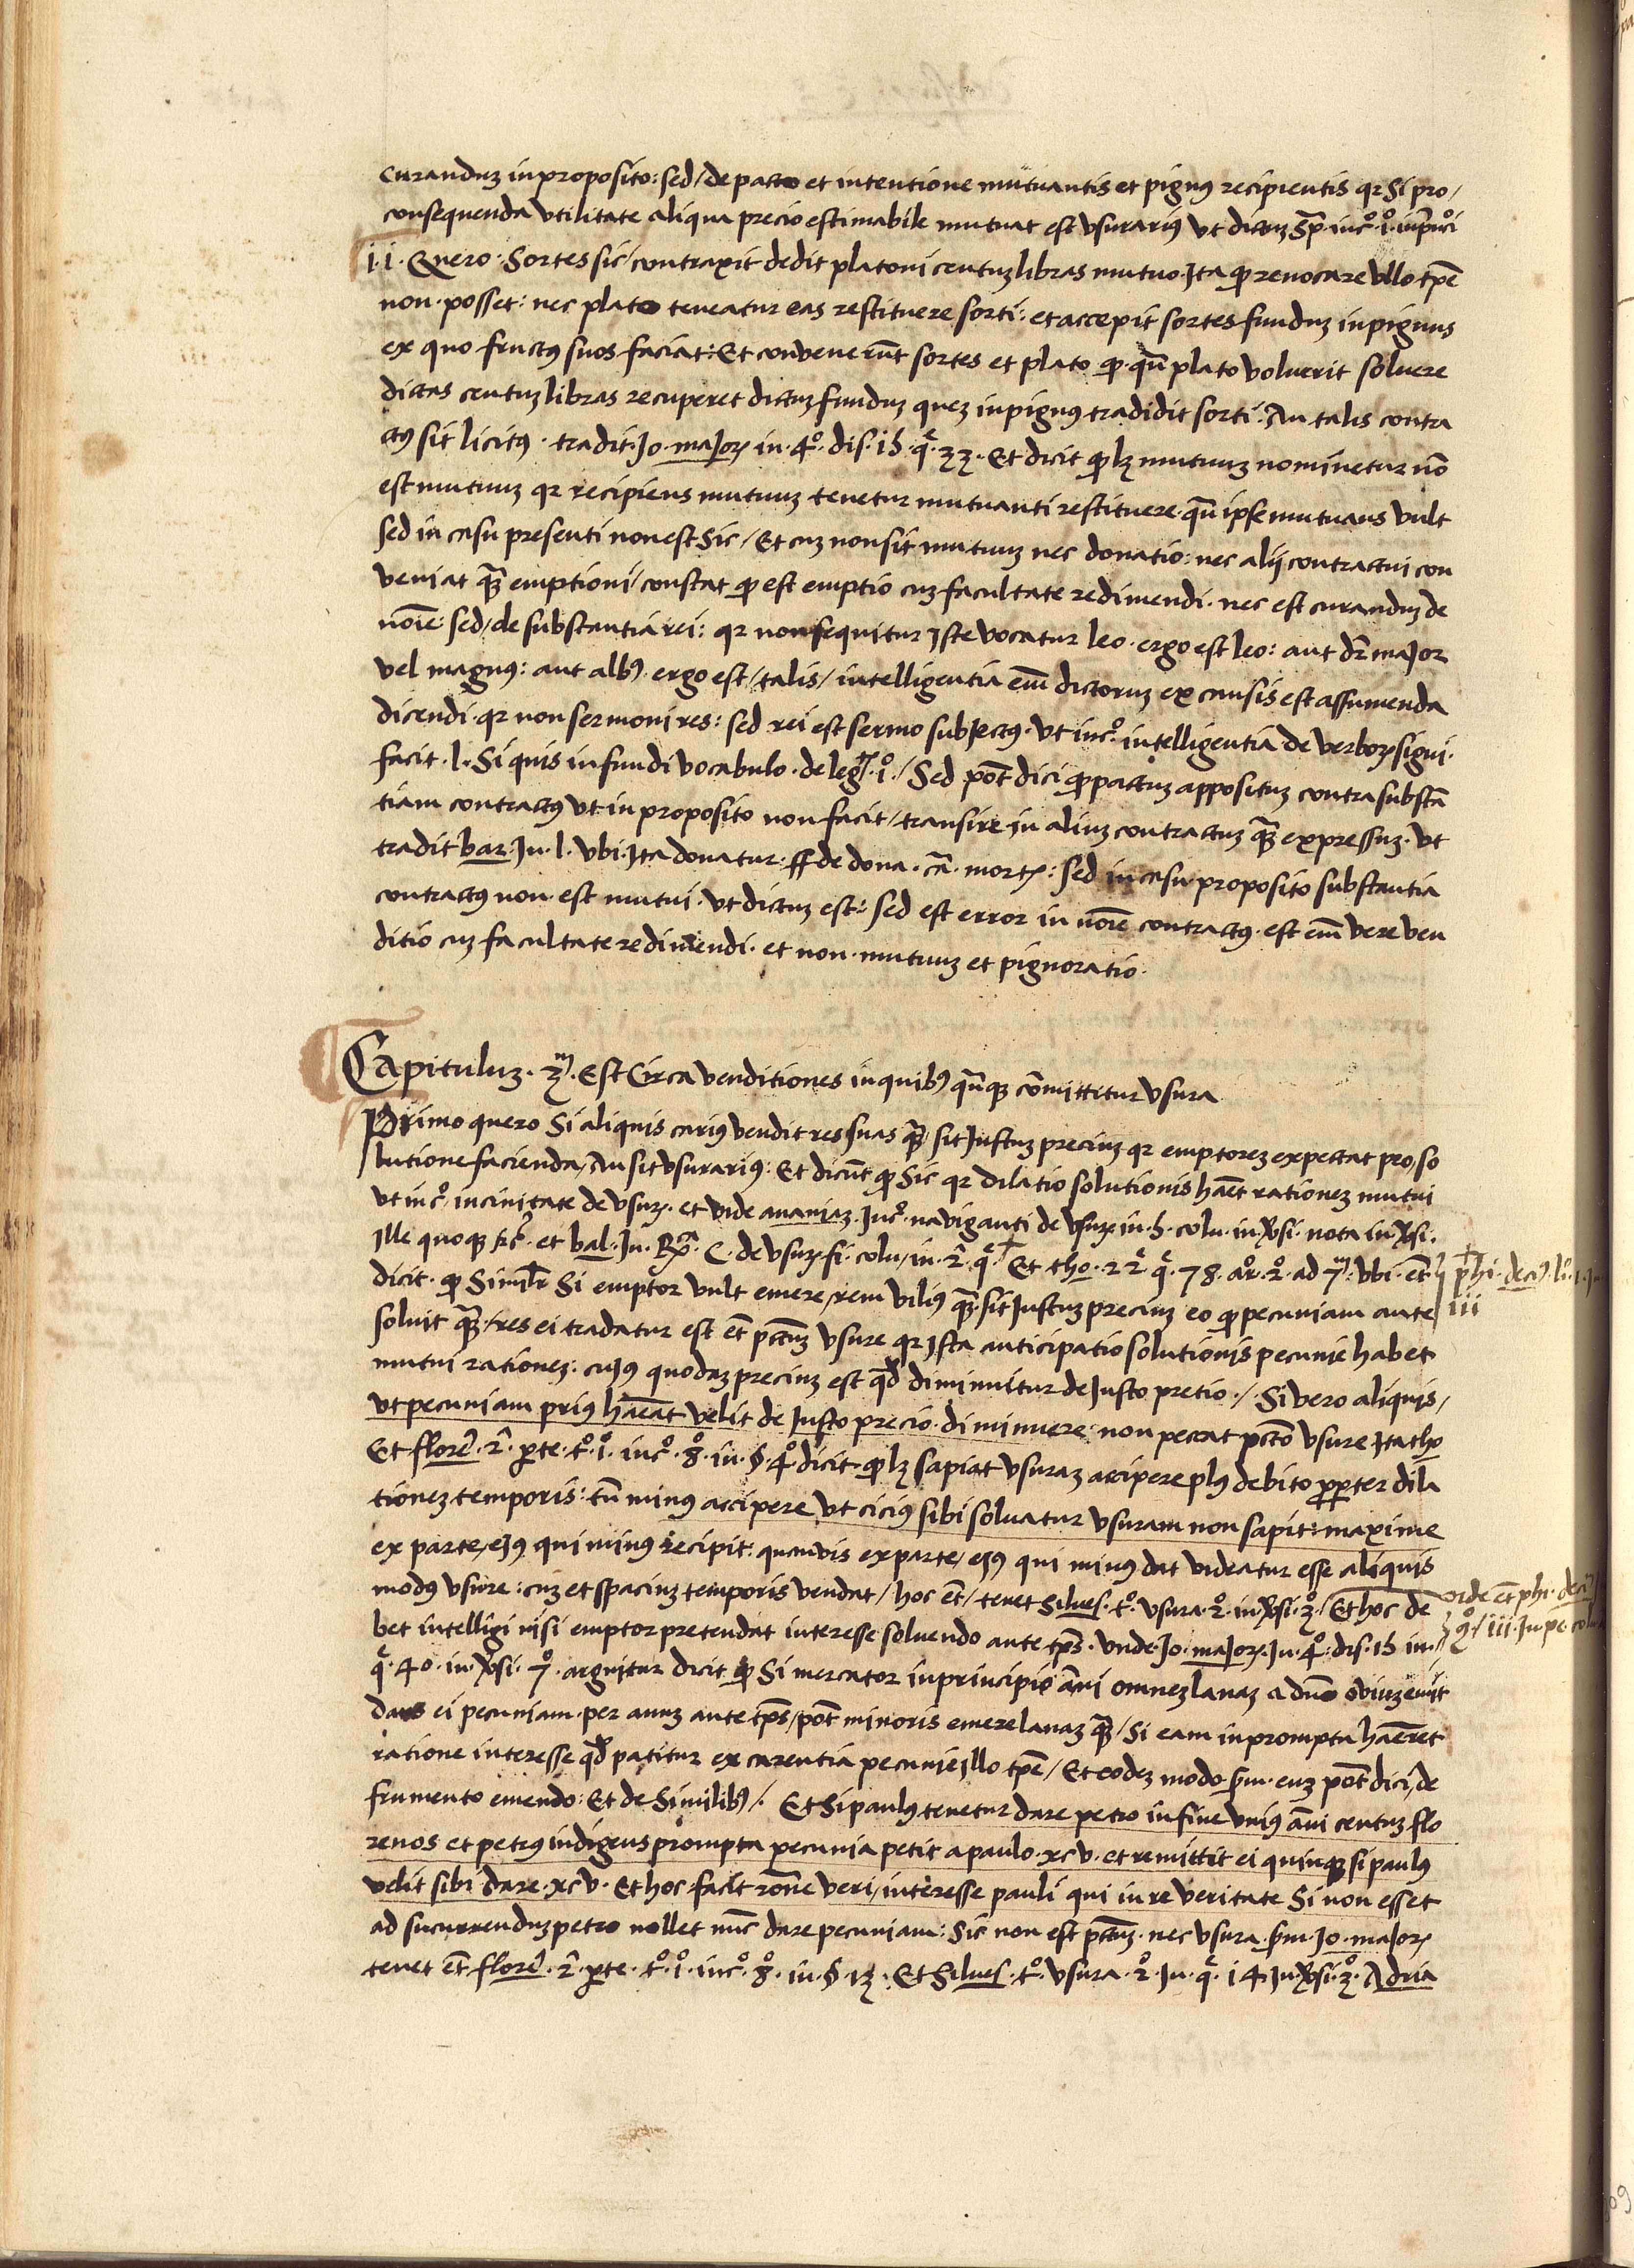 curanduz in proposito: sed / de pacto et intentione mutuantis et pignus recipientis qr Si pro /
consequenda utilitate aliqua precio estimabile mutuat est usurarius ut dictuz Sp̄. in c°. i°. in princi
ii. Quero. Sortes sic / contraxit dedit platoni centuz libras mutuo. Ita ꝙ revocare ullo tpē
non. posset: nec plato teneatur eas restituere sorti: et accepit sortes funduz in pignus
ex quo fructus suos faciat: Et convenerūt sortes et plato ꝙ. qn̄ plato voluerit solvere
dictas centuz libras recuperet dictuz funduz quez in pignus tradidit sorti. An talis contra
ctus sit licitus. tradit. Jo. majoꝝ in. 4°. dis. 15. q̄. 33. Et dicit ꝙ lz mutuuz nominetur nō
est mutuuz qr recipiens mutuuz tenetur mutuanti restituere. qn̄ ipse mutuans vult
sed in casu presenti non est Sic / Et cuz non sit mutuuz nec donatio: nec alij contractui con
veniat qꝫ emptioni / constat ꝙ est emptio cuz facultate redimendi. nec est curanduz de
noīe: sed / de substantia rei: qr non sequitur iste vocatur leo. ergo est leo: aut dr̄ major
vel magnus: aut albus. ergo est / talis / intelligentia em̄ dictoruz ex causis est assumenda
dicendi. qr non sermoni res: sed rei est sermo subjectus. Ut in c°. intelligentia de verboꝝ signi.
facit. l. Si quis in fundi vocabulo. de leg. i°. / Sed pōt dici ꝙ pactuz appositum contra substā
tiam contractus ut in proposito non facit / transire in aliuz contractuz qꝫ expressuz. Ut
tradit bar. In. l. Ubi. Ita donatur. ff de dona. cā. mortꝭ: Sed in casu proposito substantia
contractus non. est mutui. ut dictuz est: sed est error in noīe contractus. est em̄ vere ven
ditio cuz facultate redimendi. et non. mutuuz et pignoratio.
Capituluz. 3m. Est Circa venditiones in quibus qn̄qꝫ cōmittitur usura
Primo quero Si aliquis carius vendit res suas qꝫ sit Justuz preciuz qr emptorez expectat pro / so
lutione facienda / An sit usurarius: Et dicūt ꝙ Sic qr dilatio solutionis haēt rationez mutui
ut in c°. in civitate de usuꝝ. et vide ananiaz. In c°. naviganti de usuꝝ in. 5. colu. in ꝟsi. nota in ꝟsi.
Ille quoqꝫ etc. et bal. In. Rca. C. de usuꝝ. fi. colu / in. 2. q̄. Et tho. 22. q̄. 78. ar. 2°. ad 7m: ubi. et.
dicit. ꝙ Similr Si emptor vult emere / rem vilius qꝫ. sit Justuz preciuz eo ꝙ pecuniam ante
solvit qꝫ. / res ei tradatur est et̄ pctm̄ usure qr ista anticipatio solutionis pecunie habet
mutui rationez: cujus quodaz preciuz est qd diminuitur de Justo pretio. / Si vero aliquis /
ut pecuniam prius haēat velit de Justo precio. diminuere. non peccat pctō usure Ita tho
Et flore. 2. pte. t°. i°. in c°. 8°. in. §. 4°. dicit. ꝙ lz sapiat usuraz accipere plus debito propter dila
tionez temporis: tn̄ minus accipere ut cicius sibi solvatur usuram non sapit: maxime
ex parte / ejus qui minus recipit: quamvis ex parte / ejus qui minus dat videatur esse aliquis
modus usure: cuz et spaciuz temporis vendat / hoc et̄ / tenet Silves. t°. usura. 2°. in ꝟsi. 3°. / Et hoc de
bet intelligi nisi emptor pretendat interesse solvendo ante tp̄s. Unde. Jo. majoꝝ. In. 4°. dis. 15 in.
q̄. 40. in. ꝟsi. 7°. arguitur dicit. ꝙ Si mercator in principio āni omnez lanaz a dn̄o oviuz emit
dans ei pecuniam. per annuz ante tp̄s / pōt minoris emere lanaz qꝫ / Si eam in promptu haēret
ratione interesse qd patitur ex carentia pecunie illo tpē / Et eodez modo sm. euz pōt dici / de
frumento emendo: Et de Similibus / . Et Si paulus tenetur dare petro in fine unius āni centuz flo
renos et petrus indigens prompta pecunia petit a paulo. xcv. et remittit ei quinqꝫ si paulus
velit sibi dare. xcv. Et hoc. facit rōne veri / interesse pauli qui in re veritate Si non esset
ad sucurrenduz petro nollet nūc dare pecuniam: Sic non est pctm̄. nec usura. sm. Jo. majoꝝ
tenet et̄ flore. 2. pte. t°. i°. in c°. 8°. in. §. 13. Et Silves. t°. usura. 2°. In. q̄. 14. In. ꝟsi. 3°. Adria
phi. deci. li. 1.
iii
vide et̄ phi. deci
iii. In pe. colu